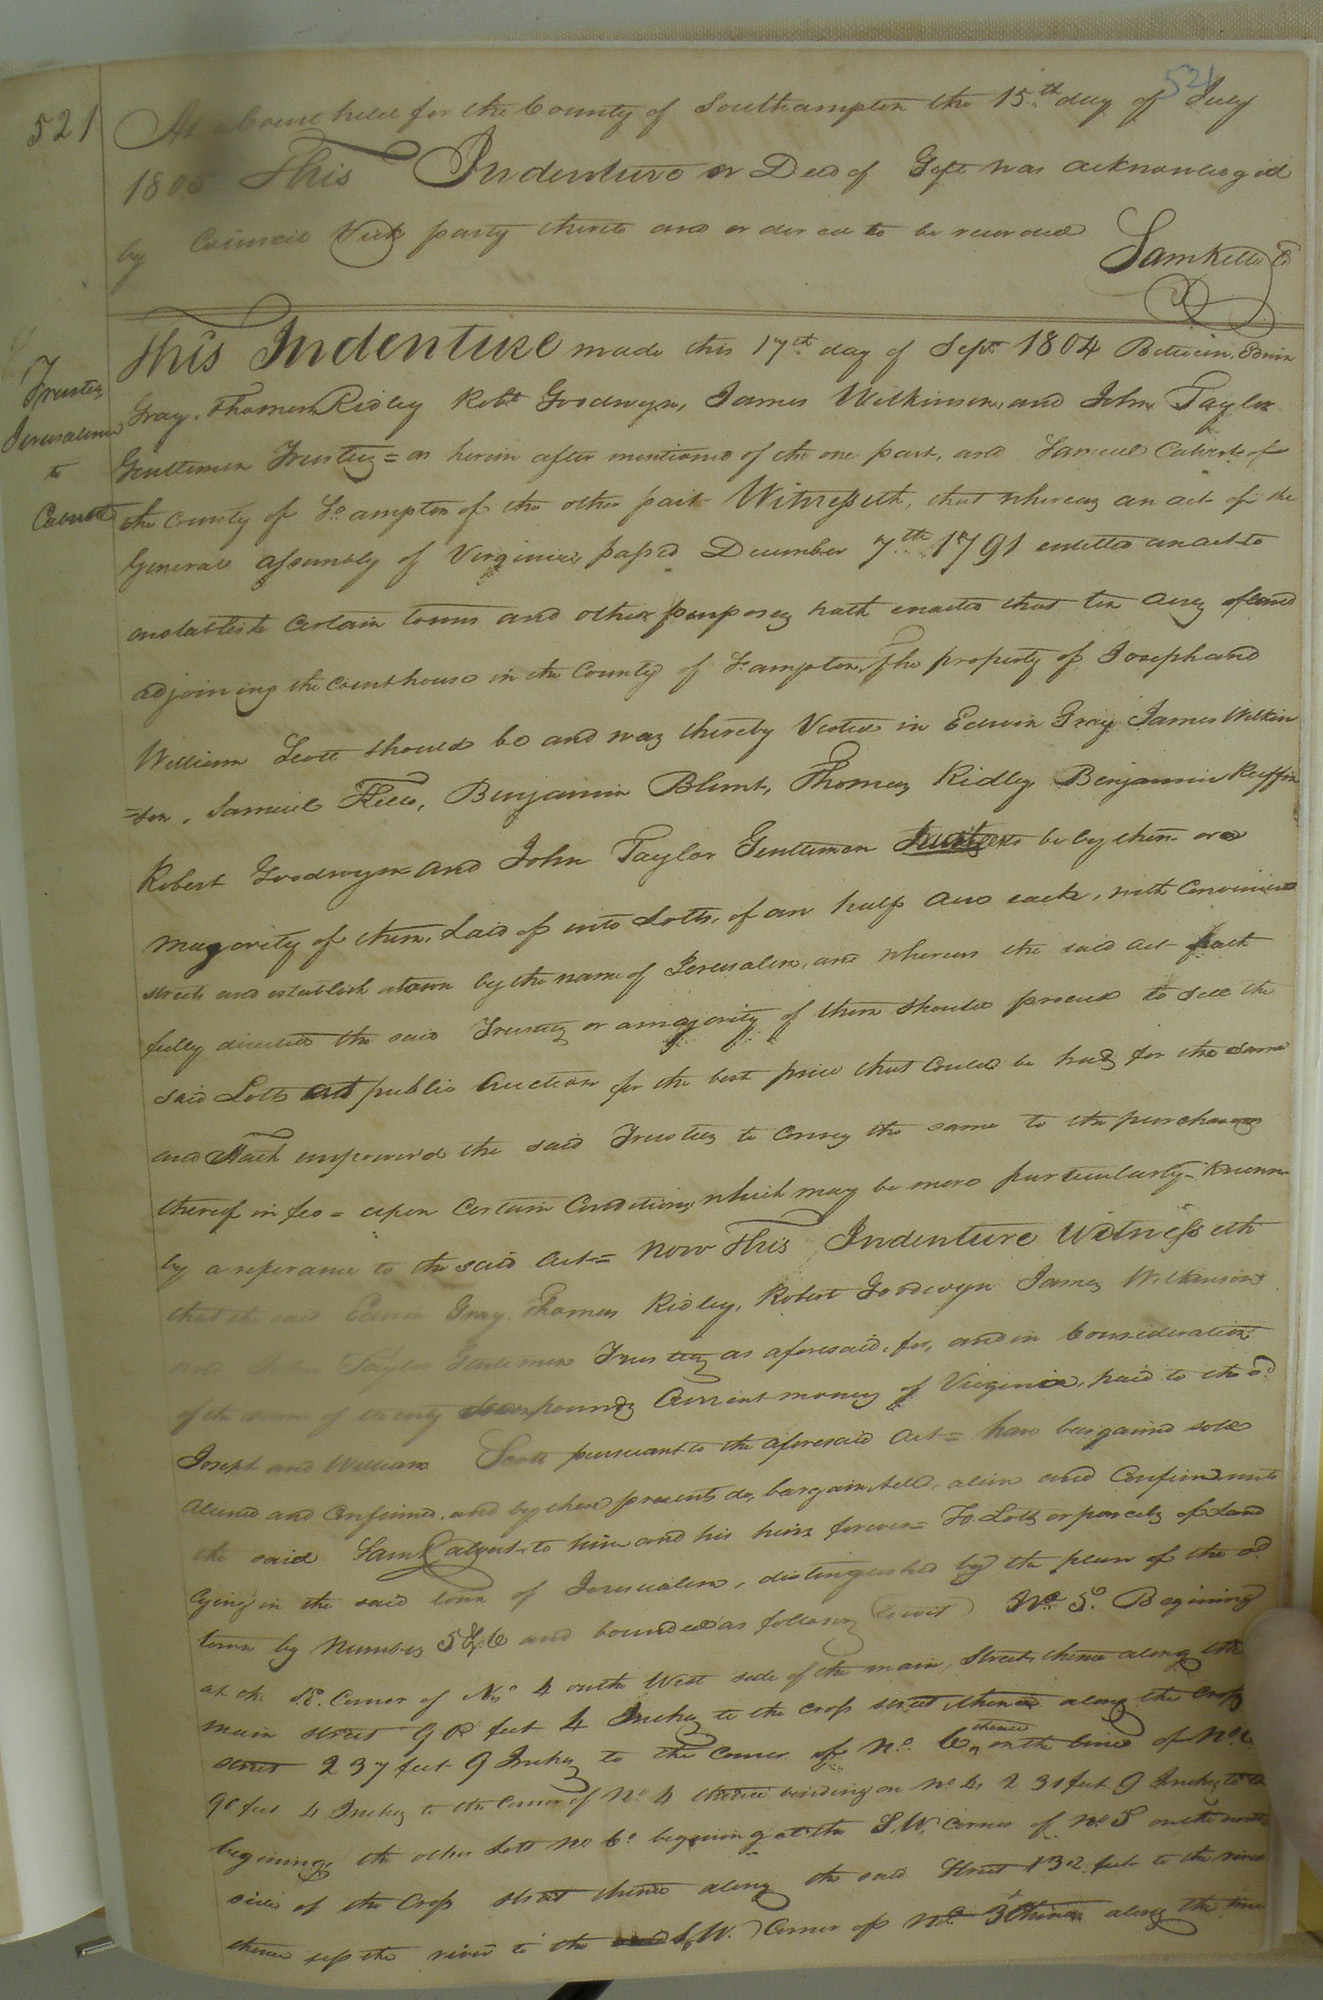 521
521
At a Court held for the County of Southampton the 15th day of July
1805 This Indenture or Deed of Gift was acknowledged
by Council Vick party thereto and ordered to be recorded
Sam Kello C
Trustees
Jerusalem
to
Calvert
This Indenture made this 17th day of Sept 1804 Between Edwin
Gray, Thomas Ridley Robt Goodwyn, James Wilkinson, and John Taylor
Gentlemen Trustees = as herein after mentioned of the one part, and Samuel Calvert of
the County of So ampton of the other part Witnesseth, that whereas an act of the
General assembly of Virginia passed December 7th 1791 entitled an act to
establish certain towns and other purposes hath enacted that ten acres of land
adjoining the courthouse in the County of So ampton, the property of Joseph and
William Scott should be and was thereby Vested in Edwin Gray James Wilkin
=son, Samuel Kello, Benjamin Blunt, Thomas Ridley, Benjamin Ruffin
Robert Goodwyn and John Taylor Gentlemen Trustees to be by them or a
majority of them, Laid of into Lotts, of an half acre each, with Convenient
streets and establish a town by the name of Jerusalem, and whereas the said act hath
fully directed the said Trustees or a majority of them should proceed to sell the
said Lotts at public Auction for the best price that could be had for the same
and Hath impowered the said Trustees to convey the same to the purchasers
thereof in fee = upon Certain Conditions which may be more particularly known
by a referance to the said Act = Now This Indenture Witnesseth
that the said Edwin Gray, Thomas Ridley, Robert Goodwyn James Wilkinson
and John Taylor Gentlemen Trustees as aforesaid, for, and in Consideration
of the sum of twenty pounds Current money of Virginia, paid to the sd
Joseph and William Scott pursuant to the aforesaid Act = have bargained sold
aliened and confirmed, and by these presents do, bargain, sell, alien and confirm unto
the said Saml Calvert to him and his heirs forever = To Lotts or parcels of Land
lying in the said town of Jerusalem, distinguished by the plan of the sd
town by Numbers 5 & 6 and bounded as follows (towit) No 5. Begining
at the S.E. Corner of No 4 on the West side of the main Street, thence along the
main street 90 feet 4 Inches to the cross street thence along the Cross
street 237 feet 9 Inches to the Corner of No 6, thence on the line of No 6
90 feet 4 Inches to the Corner of No 4 thence binding on No 4, 231 feet 9 Inches to the
begining, the other Lott No 6 begining at the S.W. Corner of No 5 on the north
side of the Cross street thence along the said Street 132 feet to the river
thence up the river to the S.W. Corner of No 3 thence along the line